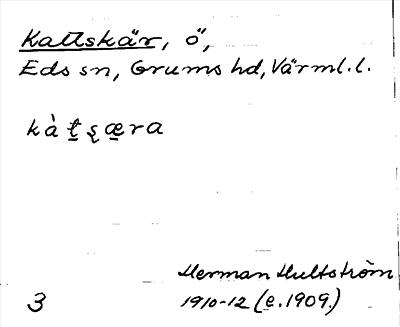 Kattskär, ö,
Eds sn, Grums hd, Värml. l.
kàt̲ʂæ̲ra
Herman Hultström
3 1910-12 (e. 1909.)